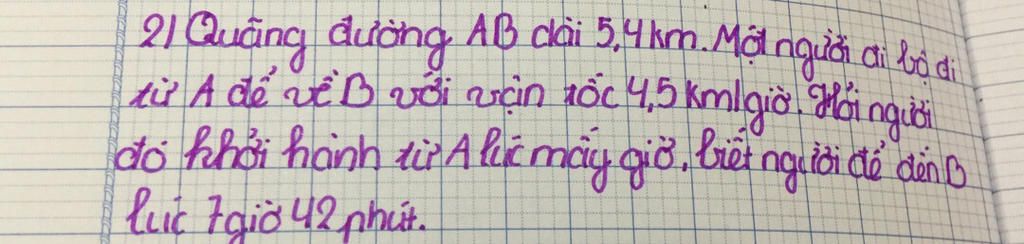 2) Quãng đường AB dài 5,4 km. Một người đi bộ đi
từ A để về B với vận tốc 4,5 km/giờ. Hỏi người
đó khởi hành từ A lúc mấy giờ, biết người để đến B
lúc 7 giờ 42 phút.